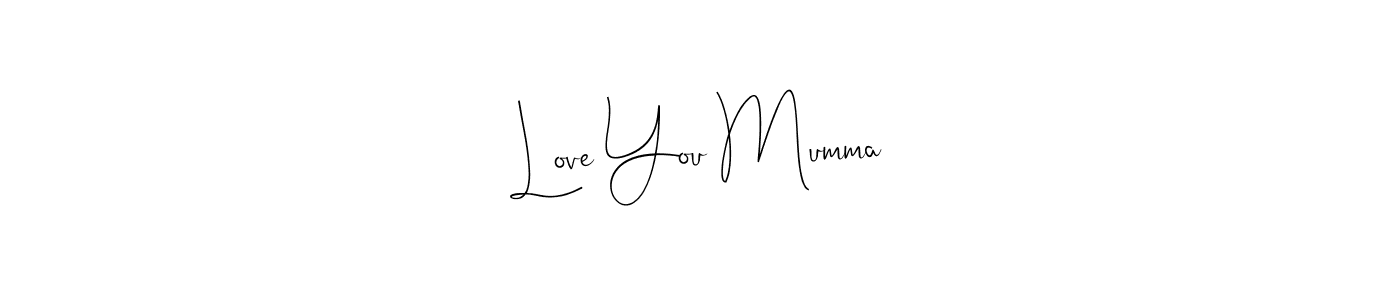 Love You Mumma